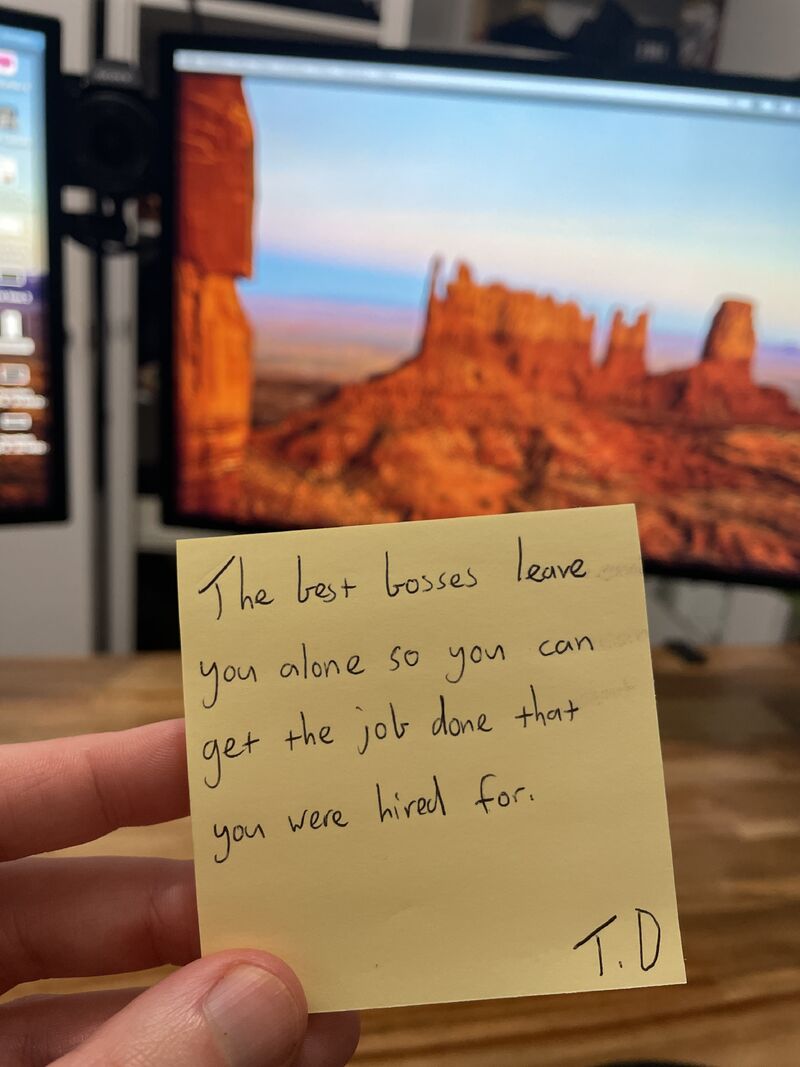 The best bosses leave
you alone so you can
get the job done that
you were hired for.
T.D